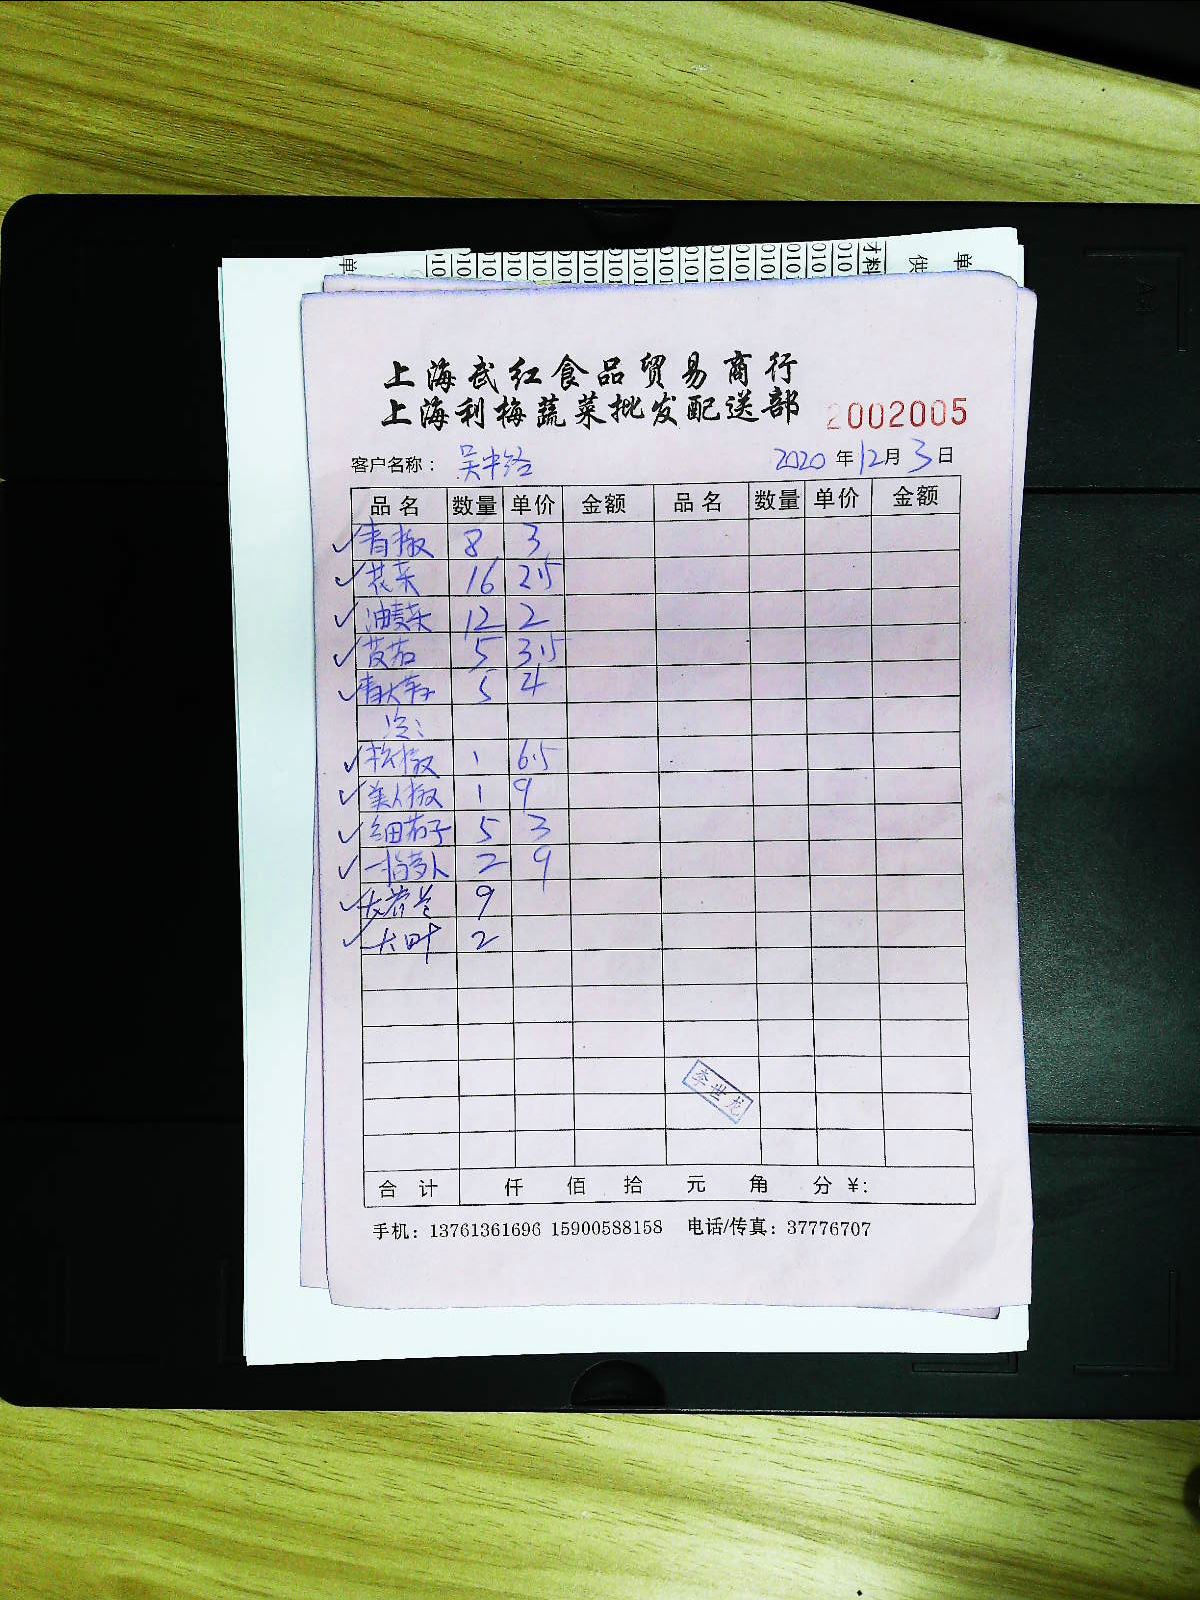 上海武红食品贸易商行
上海利梅蔬菜批发配送部 2002005
客户名称： 2020 年 12 月 3 日
品名 数量 单价 金额 品名 数量 单价 金额
青椒 8 3
花菜 16 2.5
油麦菜 12 2
5 3.5
5 4
冷：
1 6.5
美人椒 1 9
细茄子 5 3
2 9
9
大叶 2
李世龙
合计 仟 佰 拾 元 角 分 ¥：
手机：13761361696 15900588158 电话/传真：37776707